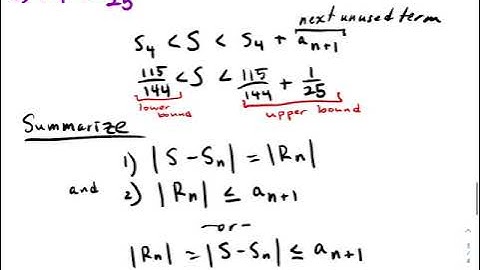 25
next unused term
S₄ < S < S₄ + aₙ₊₁
115/144 < S < 115/144 + 1/25
lower bound upper bound
Summarize
1) |S - Sₙ| = |Rₙ|
and 2) |Rₙ| ≤ aₙ₊₁
-or-
|Rₙ| = |S - Sₙ| ≤ aₙ₊₁